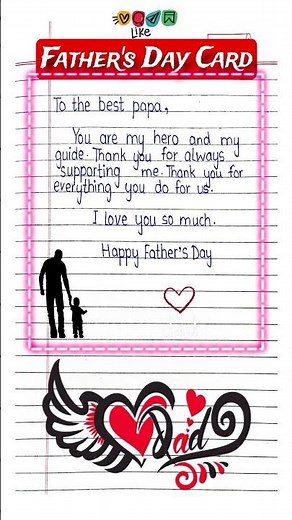 Like
FATHER'S DAY CARD
To the best papa,
You are my hero and my
guide. Thank you for always
supporting me. Thank you for
everything you do for us.
I love you so much.
Happy Father's Day
Dad